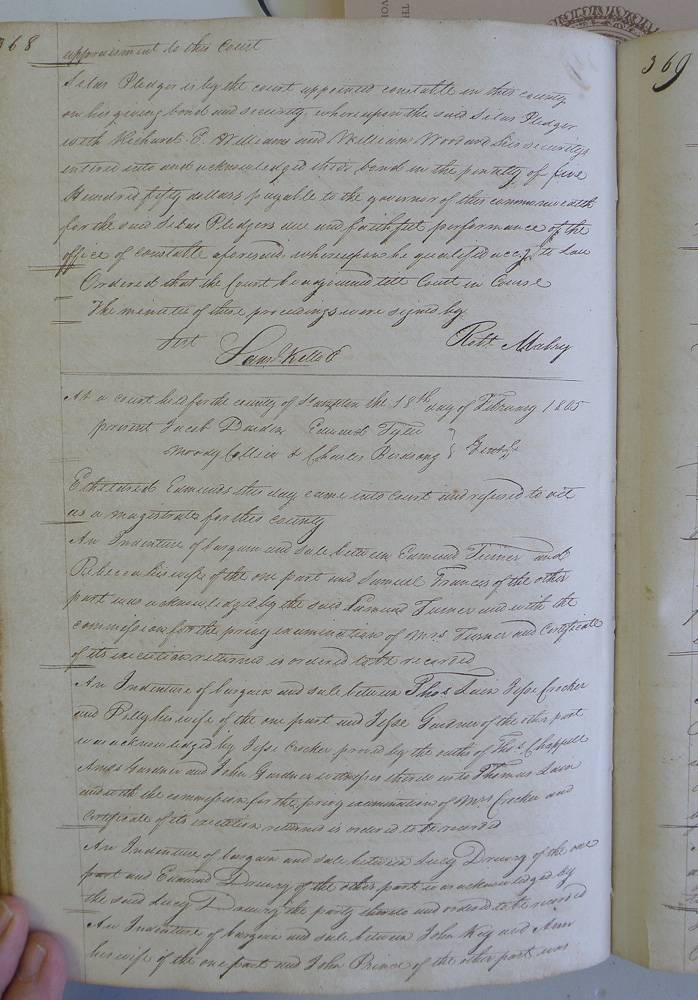 368
appointment to this Court
Silas Pledger is by the court appointed constable in this county
on his giving bond and security, whereupon the said Silas Pledger
with Richard E. Williams and William Woodard his securitys
entered into and acknowledged their bond in the penalty of five
Hundred fifty dollars payable to the governor of this commonwealth
for the said Silas Pledgers due and faithfull performance of the
office of constable aforesaid whereupon he qualified accg to Law
Ordered that the Court be adjourned till Court in Course
The minutes of these proceedings were signed by
Test Saml Kello C Robt Mabry
At a court held for the county of S ampton the 18th day of February 1805
present Jacob Darden Edmund Tyler
Moody & Charles Birdsong Gent
Etheldred Edmunds this day came into court and refused to act
as a magistrate for this county
An Indenture of bargain and sale between Edmund Turner and
Rebecca his wife of the one part and Samuel Francis of the other
part was acknowledged by the said Edmund Turner and with the
commission for the privy examination of Mrs Turner and Certificate
of its execution returned is ordered to be recorded
An Indenture of bargain and sale between Thos Lain Jesse Crocker
and Polly his wife of the one part and Jesse Gardner of the other part
was acknowledged by Jesse Crocker proved by the oaths of Thos Chappell
Amos Gardner and John Gardner witnesses thereto as to Thomas Lain
and with the commission for the privy examination of Mrs Crocker and
Certificate of its execution returned is ordered to be recorded
An Indenture of bargain and sale between Lucy Drewry of the one
part and Edmund Drewry of the other part was acknowledged by
the said Lucy Drewry the party thereto and ordered to be recorded
An Indenture of bargain and sale between John and Ann
his wife of the one part and John Prince of the other part was
369